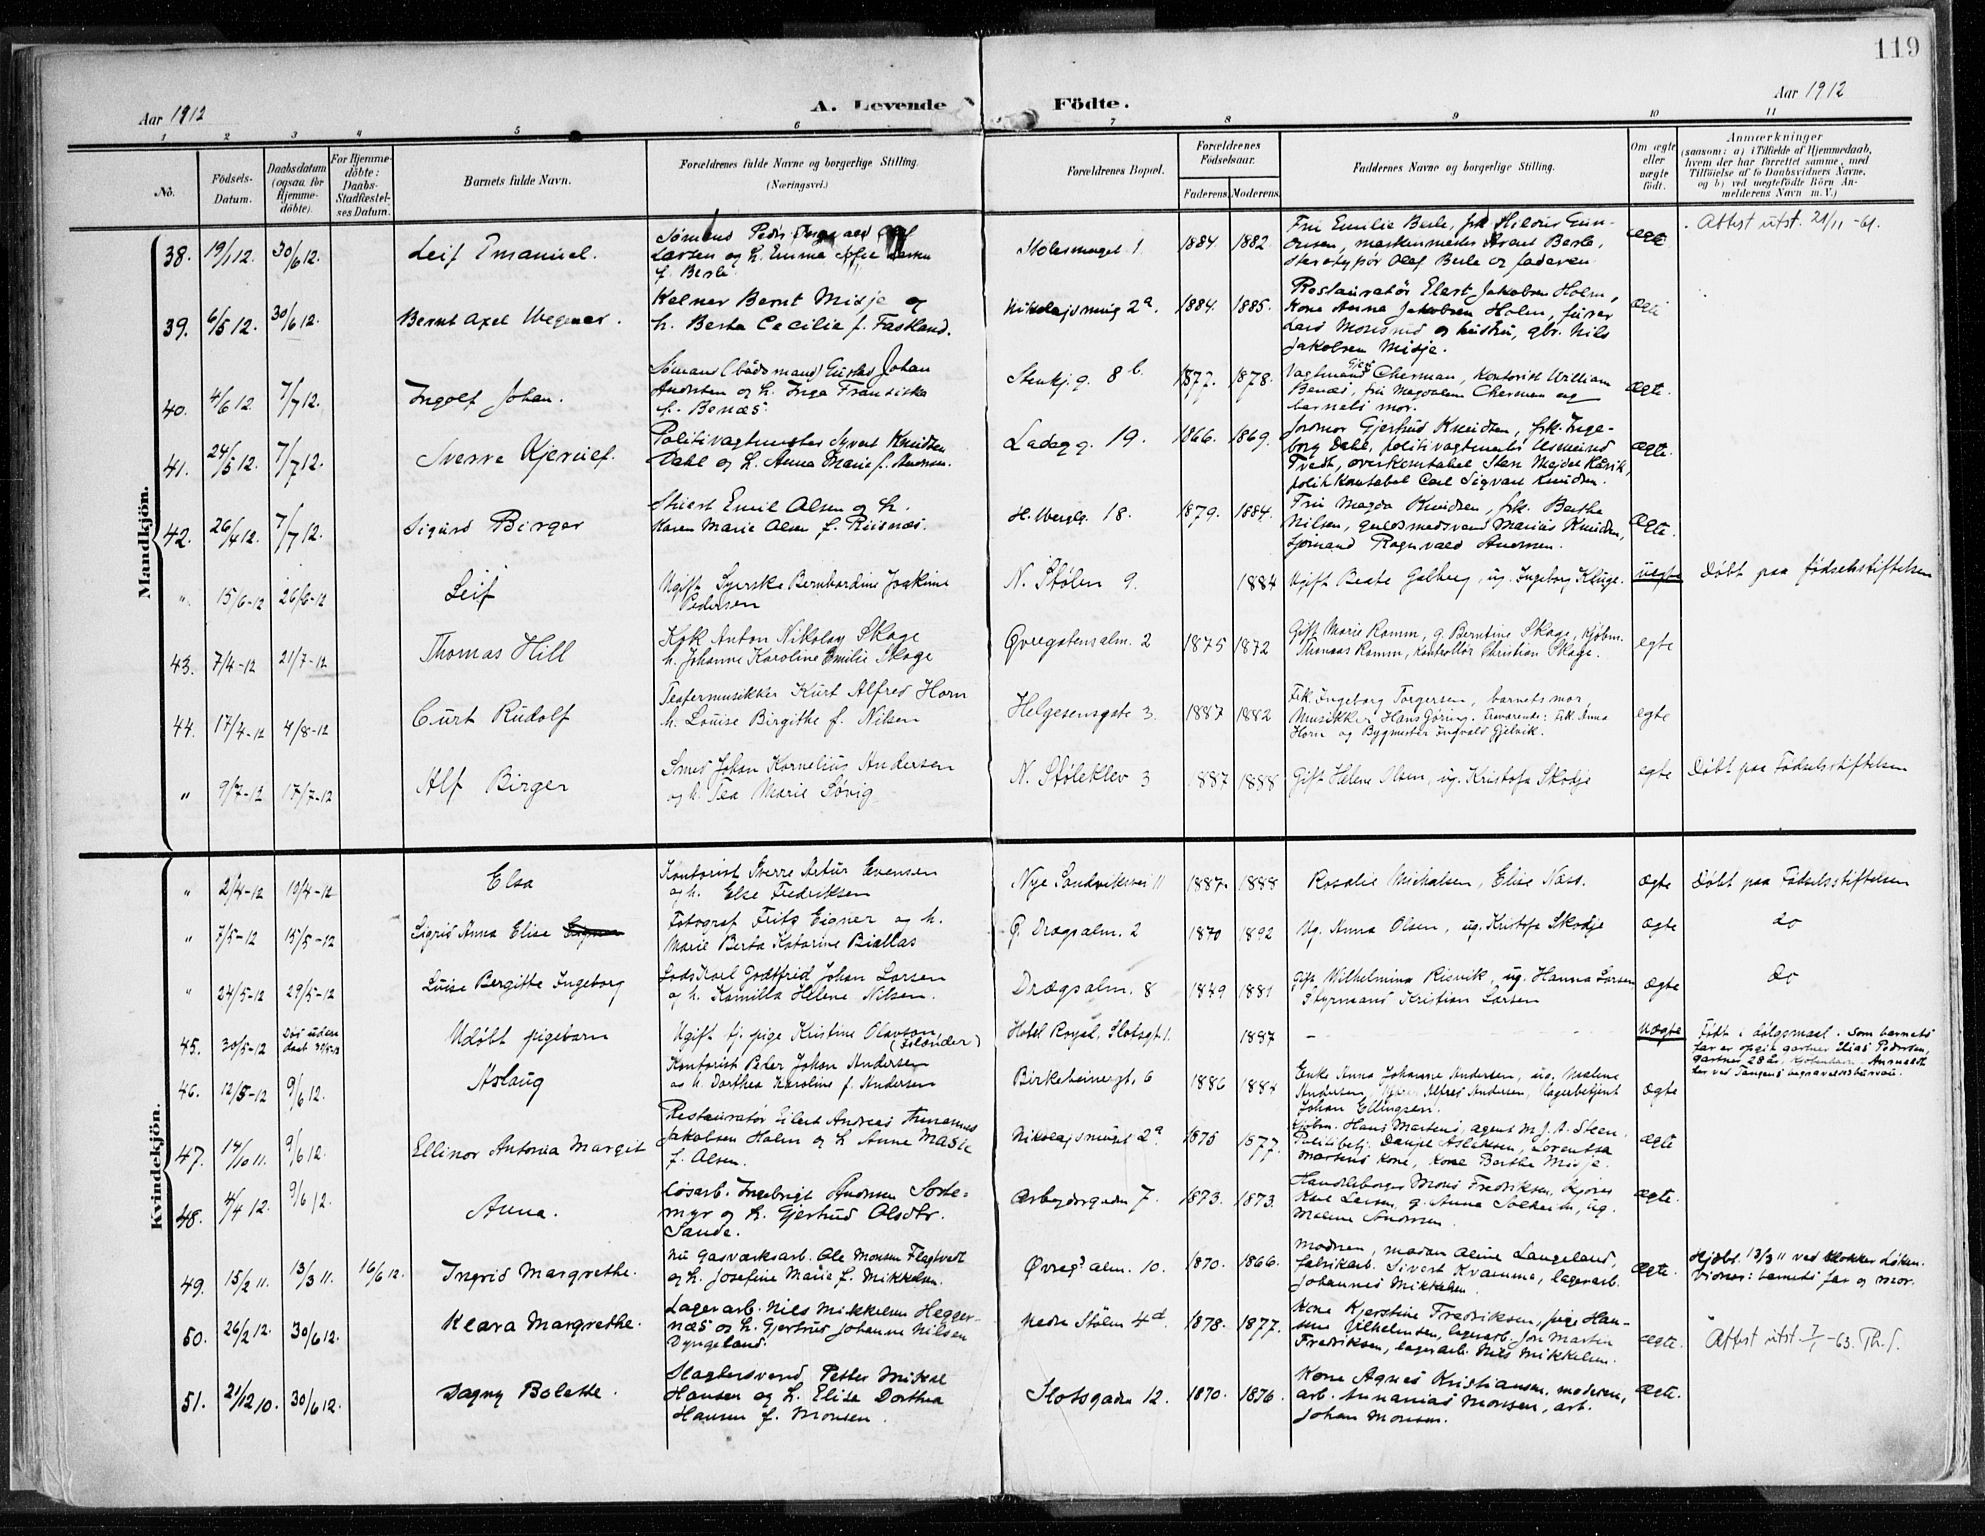 119
Aar 1912
A. Levende Födte.
Aar 1912
1 2 3 4 5 6 7 8 9 10 11
No.
Födsels-Datum.
Daabsdatum (ogsaa for Hjemme-döbte).
For Hjemme-döbte: Daabs-Stadfæstel-ses Datum.
Barnets fulde Navn.
Forældrenes fulde Navne og borgerlige Stilling.
(Næringsvei.)
Forældrenes Bopæl.
Forældrenes Födselsaar.
Faderens. Moderens.
Faddernes Navne og borgerlige Stilling.
Om ægte eller uægte födt.
Anmærkninger
(saasom: a) i Tilfælde af Hjemmedaab,
hvem der har forrettet samme, med
Tilföielse af to Daabsvidners Navne,
og b) ved uægtefödte Börn An-
melderens Navn m. V.)
Mandkjön.
38. 19/1 12. 30/6 12. Leif Emanuel.
Larsen og h. Emma Sofie Larsen
f. Berle
1884. 1882.
stereotypør Olaf Berle og faderen
ægte
Attest utst. 21/11 -61.
39. 6/5 12. 30/6 12. Bernt Axel Wegener.
Kelner Bernt Misje og
h. Berta Cecilie f. Fastland.
Nikolajsmug 2a. 1884. 1885.
Restauratør Elert Jakobsen Holm,
Kone Anna Jakobsen Holm, fyrer
Lars Monsund og hustru, gbr. Nils
Jakobsen Misje.
ægte
40. 4/6 12. 7/7 12. Ingolf Johan.
Sømand (bådsmand) Gustav Johan
Andersen og h. Inga Fransiska
f. Benæs.
Stenkj.g. 8b. 1877. 1878.
Vagtmand Cherman, kontorist William
Benæs, fru Magdalene Cherman og
barnets mor.
ægte.
41. 24/5 12. 7/7 12. Sverre Kjerulf.
Politivagtmester Syvert Knudsen
Dahl og h. Anna Marie f. Andersen.
Ladegg. 19. 1866. 1869.
Jormor Gjertrud Knudsen, frk. Inge-
borg Dahl, politivagtmester Asmund
Tvedt, overkonstabel Sten Mejdel Råvik,
politikonstabel Carl Sigvart Knudsen.
ægte.
42. 26/4 12. 7/7 12. Sigurd Birger
Stuert Emil Olsen og h.
Karen Marie Olsen f. Risnæs.
H. Wergelg. 18. 1879. 1884.
Fru Magda Knudsen, frk. Berthe
Nilsen, guldsmedsvend Marius Knudsen,
sjømand Ragnvald Andersen.
ægte.
" 15/6-12 26/6-12 Leif
Ugift Syerske Bernhardine Joakime
Pedersen
N. Stølen 9. 1884
Ugift Beate Galberg, ug. Ingeborg Kluge.
uegte
Døbt paa fødselsstiftelsen
43. 7/4-12 21/7-12 Thomas Hill
Kok Anton Nikolay Skage
h. Johanne Karoline Emilie Skage
Øvregatensalm. 2 1875 1872
Gift Marie Ramm, g. Berntine Skage, Kjøbm.
Thomas Ramm, Kontrollør Christian Skage.
egte
44. 17/4-12 4/8-12 Curt Rudolf
Teatermusikker Kurt Alfred Horn
h. Louise Birgithe f. Nilsen
Helgesensgate 3. 1887 1882
Frk. Ingeborg Torgersen, barnets mor
Musikker Hans Göring. Fraværende: Frk. Anna
Horn og Bygmester Ingvald Gjelvik.
egte
" 9/7-12 17/7-12 Alf Birger
Smed Johan Kornelius Andersen
og h. Tea Marie Søvig
N. Støleklev 3 1887 1888
Gift Helene Olsen, ug. Kristofa Skodje
egte
Døbt paa Fødselsstiftelsen
Kvindekjön.
" 2/4-12 19/4-12 Elsa
Kontorist Sverre Artur Evensen
og h. Else Fredriksen
Nye Sandviksvei 11 1887. 1888
Rosalie Michalsen, Elise Næss.
ægte
Døbt paa Fødselsstiftelsen
" 7/5-12 15/5-12 Sigrid Anna Elise
Fotograf Fritz Eigner og h.
Marie Berta Katarine Biallas
Ø. Drægsalm. 2 1870 1892
Ug. Anna Olsen, ug. Kristofa Skodje
ægte
do
" 24/5-12 29/5-12 Luise Bergitte Ingeborg
Lods Karl Godtfrid Johan Larsen
og h. Kamilla Helene Nilsen.
Drægsalm. 8 1849 1881
Gift Wilhelmina Risvik, ug. Hanna Larsen
Styrmand Kristian Larsen
ægte
do
45. 30/5-12 Død uden daab Udøbt pigebarn
Ugift tj. pige Kristine Olavson
(Islænder)
Hotel Royal, Slotsgt 1. 1887
–
uægte
Født i dølgsmaal. Som barnets
far er opgit gartner Elias Pedersen,
gartner 28 år, Kjøbenhavn. Anmeldt
her ved Tangens begravelsesbureau.
46. 12/5-12 9/6 12. Aslaug
Kontorist Peder Johan Andersen
og h. Dorthea Karoline f. Andersen
Birkebeinergt. 6 1886 1888
Enke Anna Johanne Andersen, ug. Malene
Andersen, Alfred Andersen, lagerbetjent
Johan Ellingsen.
ægte
47. 14/10 11. 9/6 12. Ellinor Antonia Margit
Restauratør Eilert Andreas
Jakobsen Holm og h. Anne Marie
f. Olsen.
Nikolajsmuget 2a 1875 1877.
Kjøbm. Hans Martens, agent M. J. A. Steen.
Politibetj. Daniel Aslaksen, Lorentsa
Martens kone, Kone Berthe Misje.
ægte
48. 4/4 12. 9/6 12. Anna.
Løsarb. Ingebrigt Andersen Sorte-
myr og h. Gjertrud Olsdtr.
Sande.
Arbeidergaden 7. 1873. 1873.
Handelsborger Mons Fredriksen, Kjører
Karl Larsen, g. Anna Solheim, ug.
Malene Andersen
ægte.
49. 15/2 11. 13/3 11. 16/6 12. Ingrid Margrethe.
nu Gasværksarb. Ole Monsen Flagtvedt
og h. Josefine Marie f. Mikkelsen.
Øvregs alm. 10. 1870. 1866.
Modren, madam Aline Langeland,
fabrikarb. Sivert Kvamme, lagerarb.
Johannes Mikkelsen.
ægte.
Hjdbt. 13/3 11 ved klokker Løken.
Vidner: barnets far og mor.
50. 26/2 12. 30/6 12. Klara Margrethe.
Lagerarb. Nils Mikkelsen Hegger-
næs og h. Gjertrud Johanne Nilsen
Dyngeland.
Nedre Stølen 4d. 1878. 1877.
Kone Kjerstine Fredriksen, pige Han-
sine Vilhelmsen, lagerarb. Jon Martin
Fredriksen, lagerarb. Nils Mikkelsen.
ægte.
Attest utst. 7/1 -63. Th. S.
51. 21/12 10. 30/6 12. Dagny Bolette.
Slagtersvend Petter Mikal
Hansen og h. Elise Dorthea
Hansen f. Monsen.
Slotsgaden 12. 1870. 1876.
Kone Agnes Kristiansen, moderen,
arb. Ananias Monsen, arb.
Johan Monsen.
ægte.